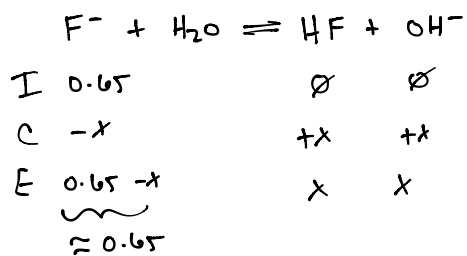 F⁻ + H₂O ⇌ HF + OH⁻
I 0.65 ∅ ∅
C -x +x +x
E 0.65 -x x x
≈ 0.65